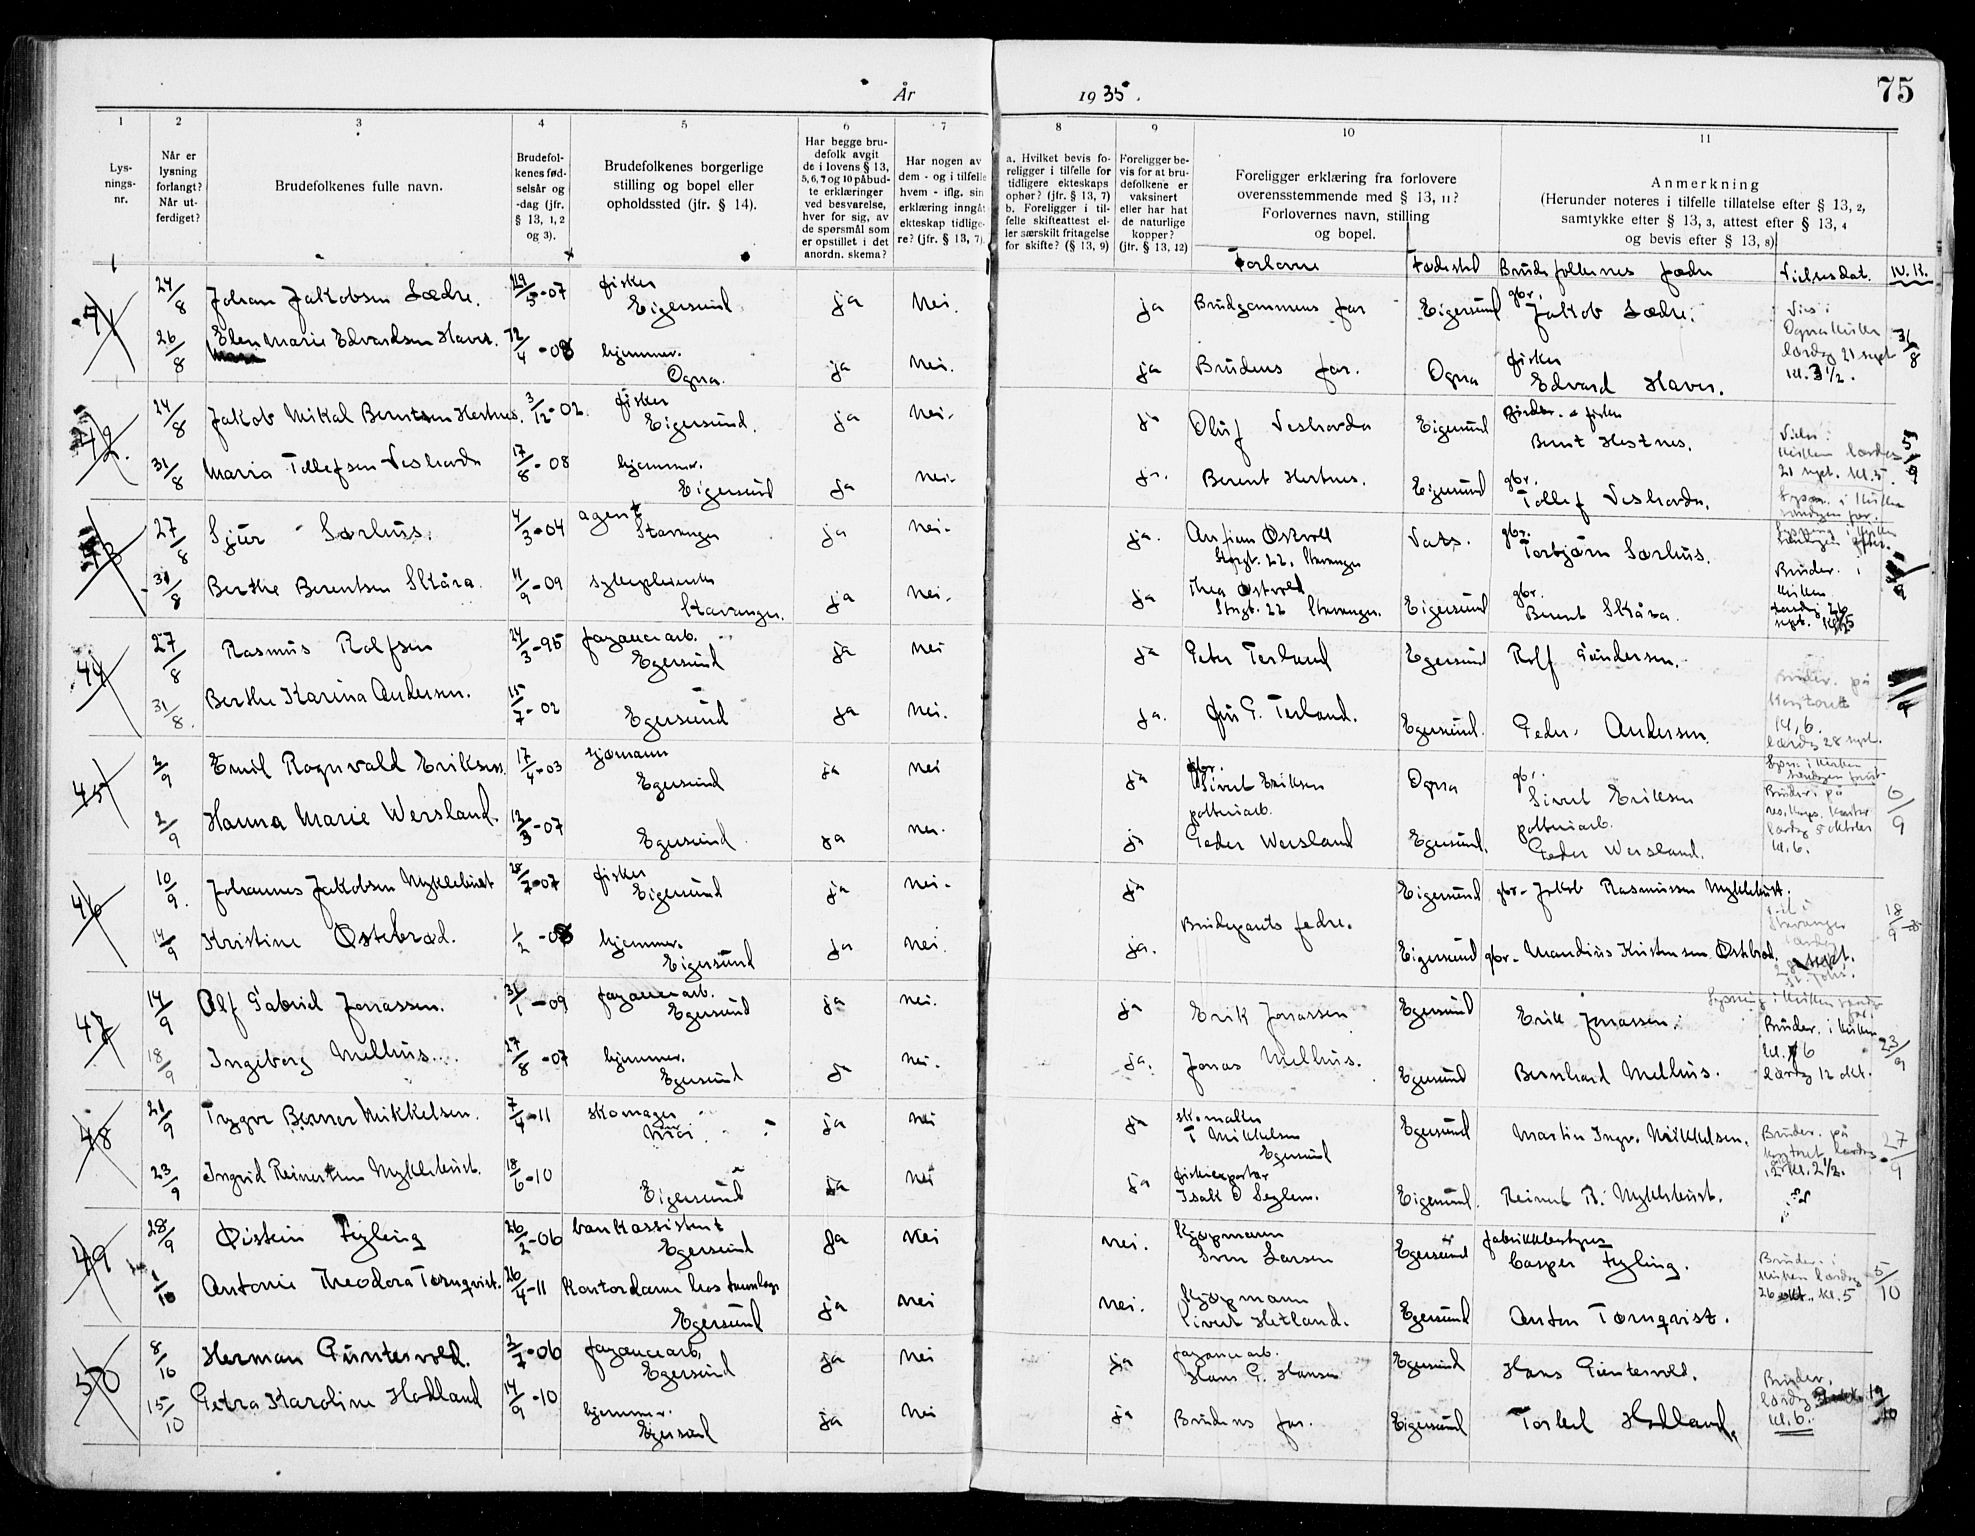 75
År 1935.
1 2 3 4 5 6 7 8 9 10 11
Lys-
nings-
nr.
Når er
lysning
forlangt?
Når ut-
ferdiget?
Brudefolkenes fulle navn.
Brudefol-
kenes fød-
selsår og
-dag (jfr.
§ 13, 1, 2
og 3).
Brudefolkenes borgerlige
stilling og bopel eller
opholdssted (jfr. § 14).
Har begge bru-
defolk avgit
de i lovens § 13,
5, 6, 7 og 10 påbud-
te erklæringer
ved besvarelse,
hver for sig, av
de spørsmål som
er opstillet i det
anordn. skema?
Har nogen av
dem - og i tilfelle
hvem - iflg. sin
erklæring inngåt
ekteskap tidlige-
re? (jfr. § 13, 7).
a. Hvilket bevis fo-
religger i tilfelle for
tidligere ekteskaps
ophør? (jfr. § 13, 7)
b. Foreligger i til-
felle skifteattest el-
ler særskilt fritagelse
for skifte? (§ 13, 9)
Foreligger be-
vis for at bru-
defolkene er
vaksinert
eller har hat
de naturlige
kopper?
(jfr. § 13, 12)
Foreligger erklæring fra forlovere
overensstemmende med § 13, 11?
Forlovernes navn, stilling
og bopel.
Anmerkning
(Herunder noteres i tilfelle tillatelse efter § 13, 2,
samtykke efter § 13, 3, attest efter § 13, 4
og bevis efter § 13, 8)
Forlovere Fødested Brudefolkenes fedre Vielsesdat.
24/8 Johan Jakobsen Sædre. 5-07 fisker Eigersund ja Nei. ja Brudgommens far Eigersund gbr. Jakob Sædre.
26/8 Elen Marie Edvardsen Haver. 12/4-08 hjemmev. Ogna. ja Nei. ja Brudens far. Ogna fisker Edvard Haver.
Vies i Ogna kirke lørdag 21 sept kl. 3 1/2. 31/8
42. 24/8 Jakob Mikal Berntsen Hestnes. 3/12-02. fisker Eigersund. ja Nei. ja Oluf Eigersund fisker Bernt Hestnes.
31/8 Maria Tollefsen 17/8-08 hjemmev. Eigersund ja Nei. ja. Berent Hestnes. Eigersund gbr. Tollef
kirken lørdag 21 sept. kl. 5. 5/9
43 27/8 Sjur Sørhus. 4/3-04 agent Stavanger ja nei. ja. Østvoll Stavanger Vats. gbr. Torbjørn Sørhus.
31/8 Berthe Berentsen Skåra. 11/9-09 Stavanger. ja nei. ja Thea Østvold Stavanger. Eigersund gbr. Berent Skåra.
44 27/8 Rasmus Rolfsen 24/3-95 fayancearb. Egersund ja nei ja Peter Terland Egersund Rolf Gundersen.
31/8. Berthe Karina Andersen. 15/7-02 Egersund ja nei. ja. G. Terland. Egersund. Peder Andersen.
Bruder. på kontoret kl. 6. lørdag 28 sept.
45 2/9 Emil Ragnvald Eriksen. 17/4-03 sjømann Egersund ja nei ja gbr. Sivert Eriksen Ogna gbr. Sivert Eriksen
2/9 Hanna Marie Wersland. 12/3-07 Egersund ja nei. ja potteriarb. Peder Wersland Egersund. potteriarb. Peder Wersland.
Bruder. på lørdag 5 oktober kl. 6. 6/9
46 10/9. Johannes Jakobsen Myklebust 28/7-07 fisker Eigersund ja nei. ja Eigersund gbr. Jakob Rasmussen Myklebust.
14/9 Kristine Østebrød. 1/2-08 hjemmev. Eigersund ja nei. ja. Brudeparets fedre. Eigersund gbr. Mandius Kristensen Østebrød.
Stavanger lørdag sept. 18/9-35
47 14/9 Olf Gabriel Jonassen. 31/1-09 fayancearb. Egersund ja nei. ja Erik Jonassen Egersund Erik Jonassen.
18/9 Ingeborg Mellhus. 27/8-07 hjemmev. Egersund ja nei. ja. Jonas Mellhus. Egersund Bernhard Mellhus.
Bruder. i kirken kl. 6 lørdag 12 okt. 23/9
48 21/9 Trygve Berner Mikkelsen. 7/4-11 skomager ja nei ja skomaker T Mikkelsen Egersund Egersund Martin Ingv. Mikkelsen.
23/9 Ingrid Reinertsen Myklebust. 18/6-10 Eigersund ja nei ja fiskeexportør Isak O Seglem. Eigersund. Reinert R. Myklebust.
Bruder. på kontoret lørdag 12 kl. 2 1/2. 27/9
49 28/9 Øistein Fegling 26/2-06 bankassistent Egersund ja nei nei. Kjøpmann Sven Larsen Egersund fabrikkbestyrer Casper Fegling.
1/10 Antonie Theodora Tornqvist. 26/4-11 Kontordame hos Egersund ja nei nei. Kjøpmann Sivert Hetland. Egersund Anton Tornqvist.
Bruder. i kirken lørdag 26 okt. kl. 5 5/10
50 8/10 Herman Guntersvold. 2/7-06 fayancearb. Egersund ja nei ja fayancearb. Hans G. Hansen Egersund Hans Guntersvold.
15/10 Petra Karoline Hadland 14/9-10 hjemmev. Egersund ja nei ja Brudens far. Eigersund Torleif Hadland
Bruder. lørdag kl. 6. 19/10